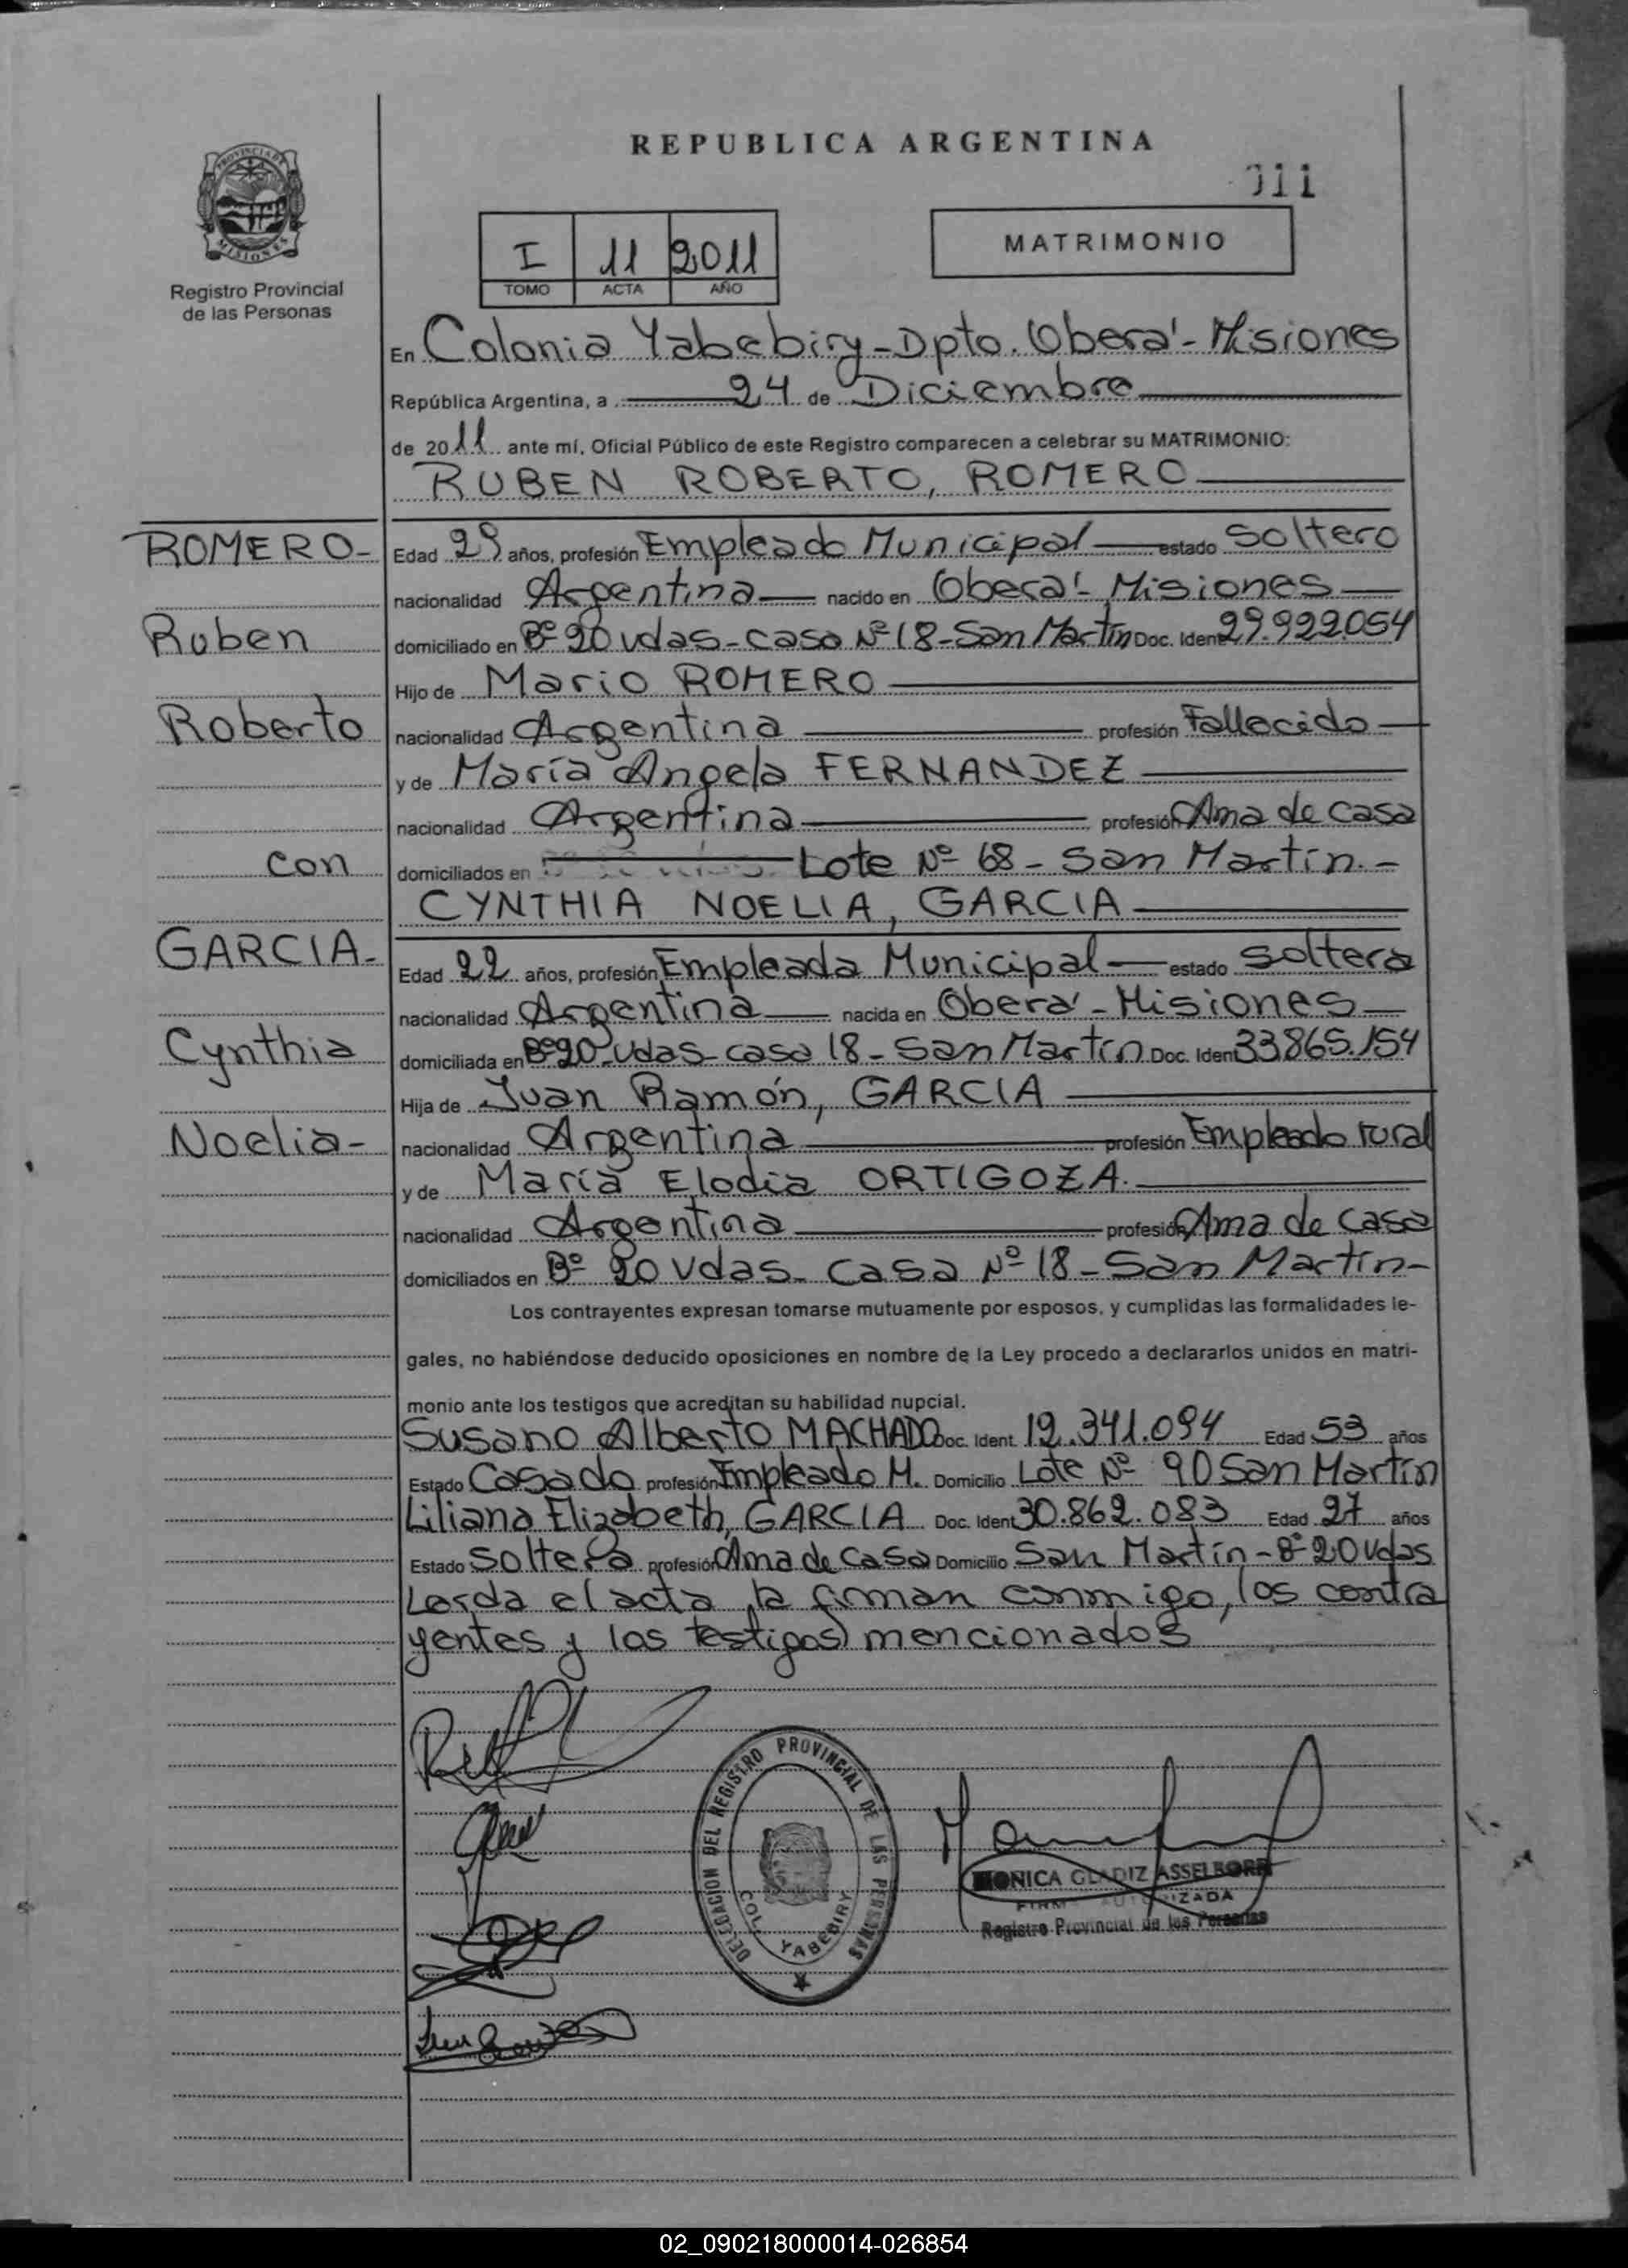 REPUBLICA ARGENTINA
011
PROVINCIA DE
MISIONES
Registro Provincial
de las Personas
I 11 2011
TOMO ACTA AÑO
MATRIMONIO
En Colonia Yabebiry - Dpto. Oberá - Misiones
República Argentina, a 24 de Diciembre
de 2011 ante mí, Oficial Público de este Registro comparecen a celebrar su MATRIMONIO:
RUBEN ROBERTO, ROMERO
ROMERO- Edad 29 años, profesión Empleado Municipal estado Soltero
nacionalidad Argentina nacido en Oberá - Misiones
Ruben domiciliado en Bº 20 vdas - casa Nº 18 - San Martín Doc. Ident 29.922.054
Hijo de Mario ROMERO
Roberto nacionalidad Argentina profesión Fallecido
y de María Angela FERNANDEZ
nacionalidad Argentina profesión Ama de casa
con domiciliados en Lote Nº 68 - San Martín.-
CYNTHIA NOELIA, GARCIA
GARCIA- Edad 22 años, profesión Empleada Municipal estado Soltera
nacionalidad Argentina nacida en Oberá - Misiones
Cynthia domiciliada en Bº 20 vdas - casa 18 - San Martín Doc. Iden 33.865.154
Hija de Juan Ramón, GARCIA
Noelia- nacionalidad Argentina profesión Empleado rural
y de María Elodia ORTIGOZA.
nacionalidad Argentina profesión Ama de casa
domiciliados en Bº 20 vdas - casa Nº 18 - San Martín-
Los contrayentes expresan tomarse mutuamente por esposos, y cumplidas las formalidades le-
gales, no habiéndose deducido oposiciones en nombre de la Ley procedo a declararlos unidos en matri-
monio ante los testigos que acreditan su habilidad nupcial.
Susano Alberto MACHADO Doc. Ident. 12.341.094 Edad 53 años
Estado Casado profesión Empleado M. Domicilio Lote Nº 90 San Martín
Liliana Elizabeth, GARCIA Doc. Ident 30.862.083 Edad 27 años
Estado Soltera profesión Ama de casa Domicilio San Martín - Bº 20 vdas
Leída el acta, la firman conmigo, los contra
yentes y los testigos mencionados
DELEGACION DEL REGISTRO PROVINCIAL DE LAS PERSONAS
COL. YABEBIRY
MONICA GLADIZ ASSELBORN
FIRMA AUTORIZADA
Registro Provincial de las Personas
02_090218000014-026854